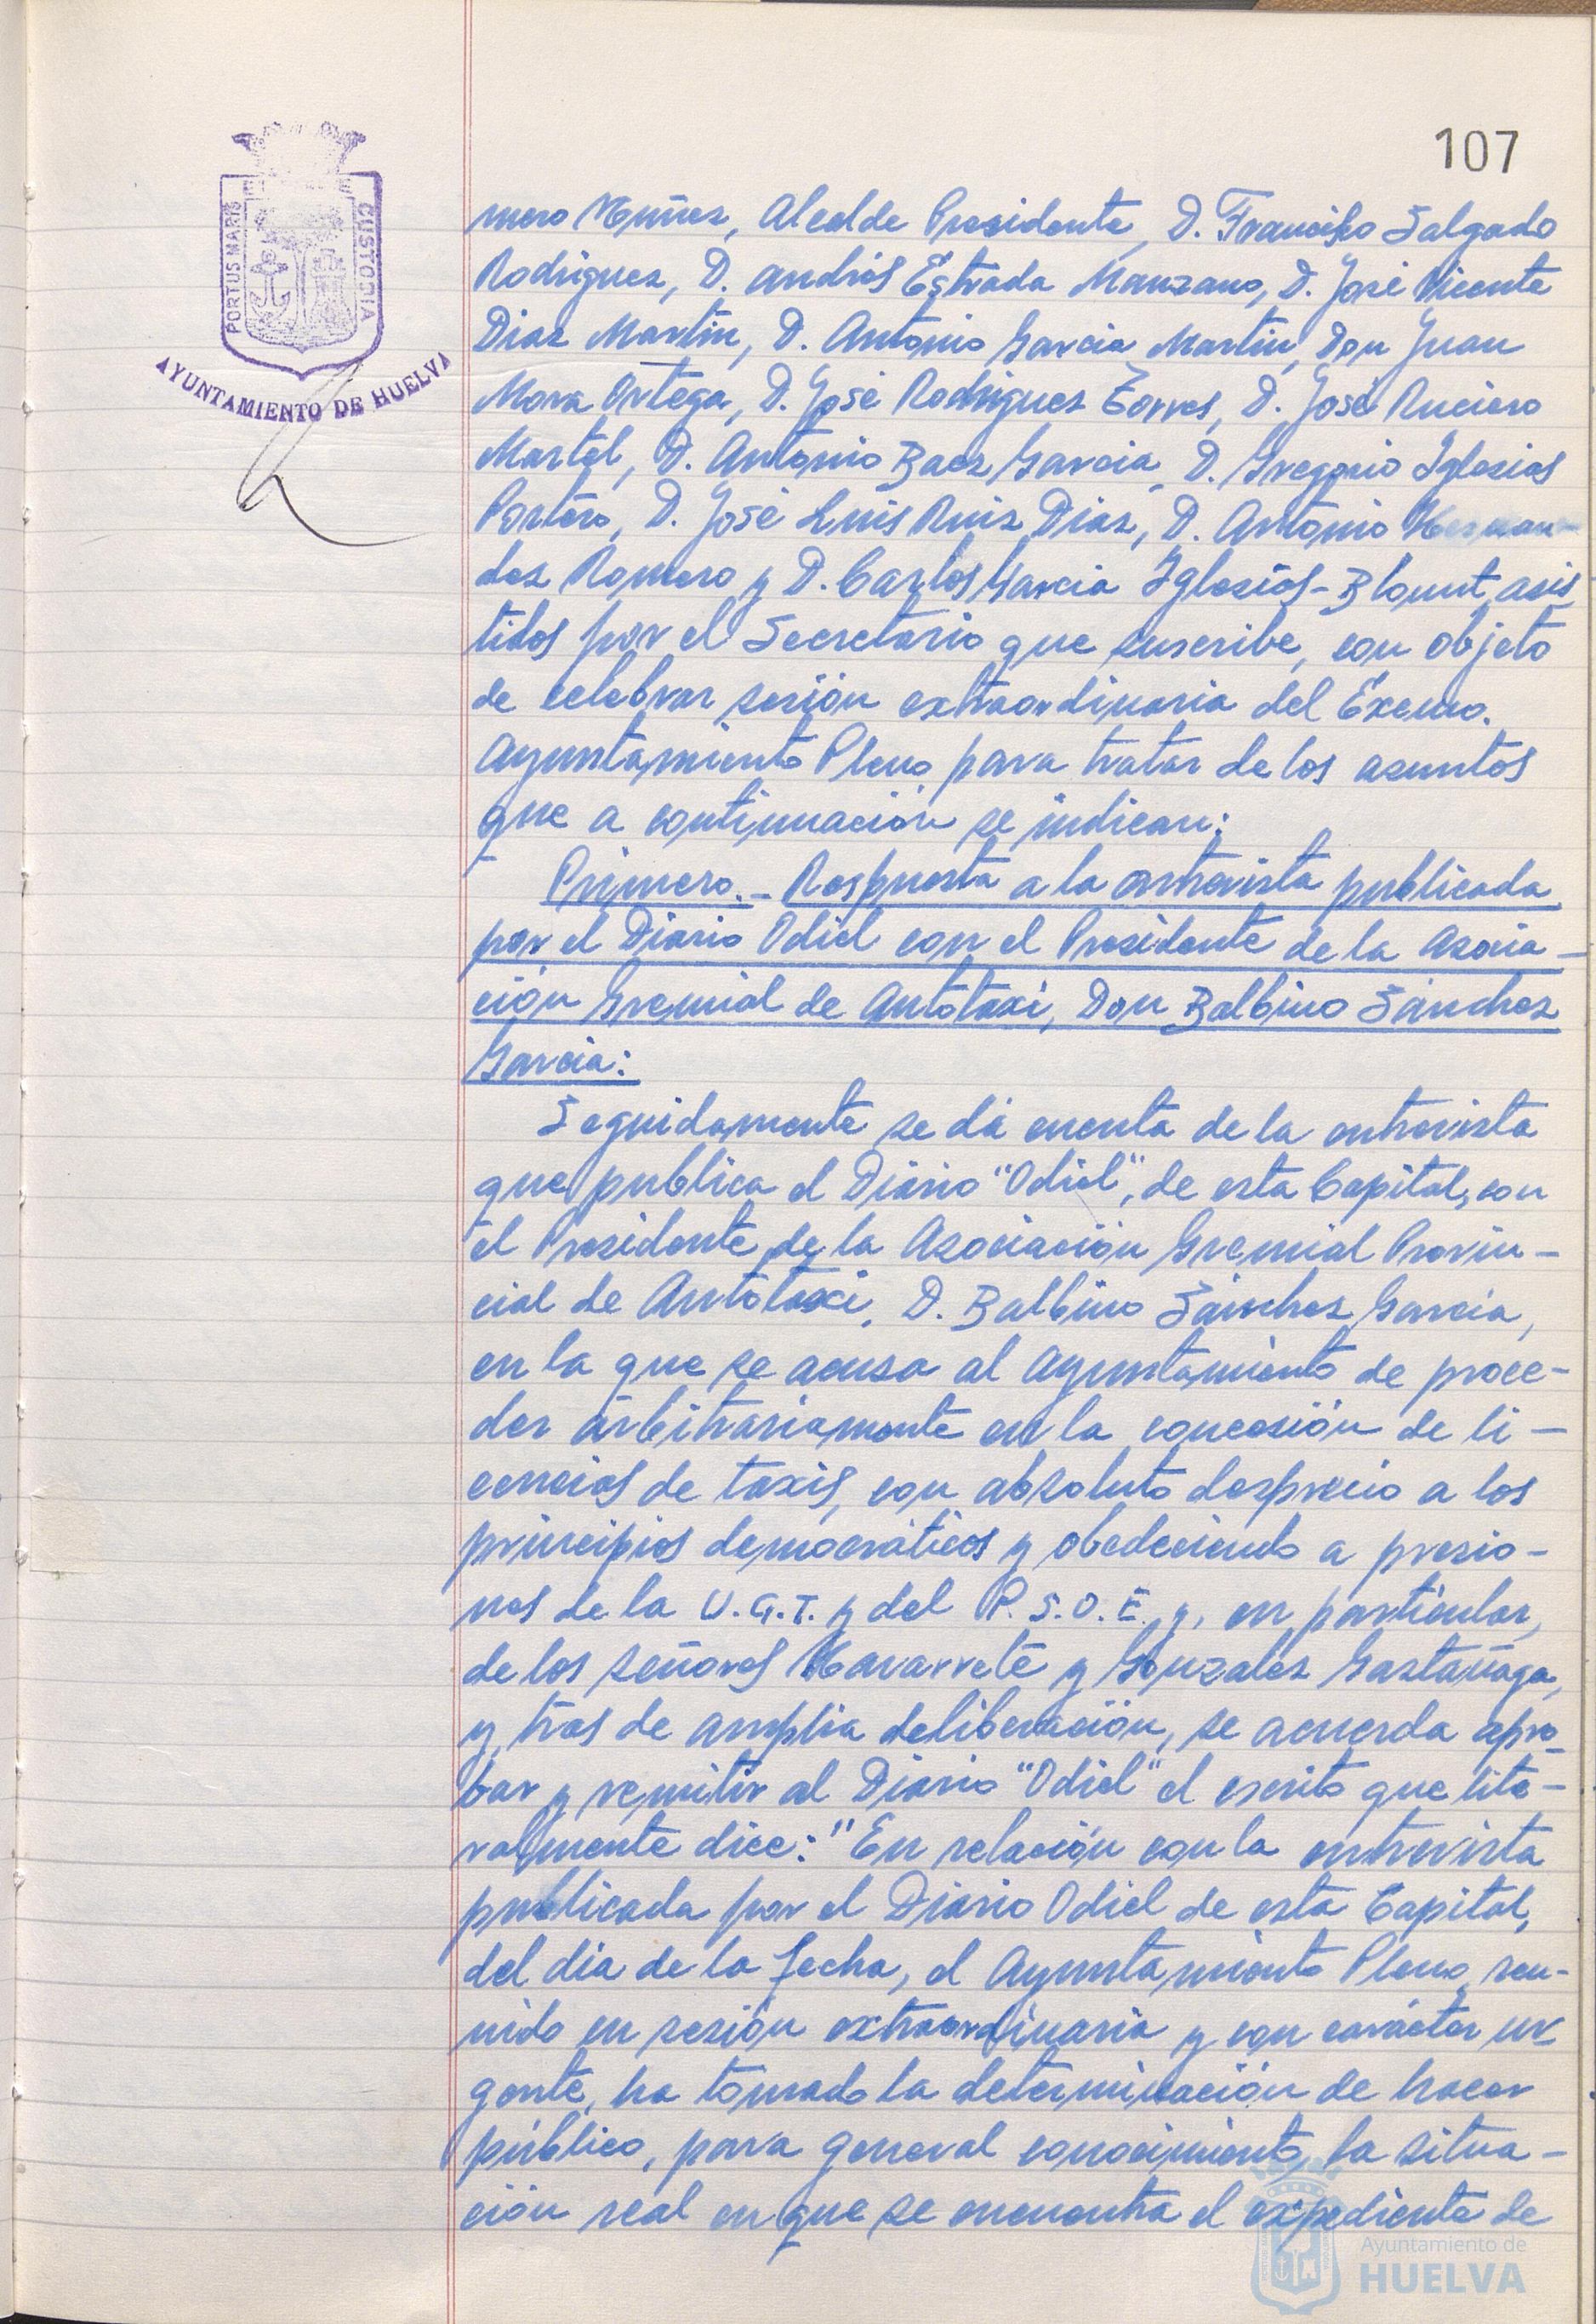 107
PORTUS MARIS
CUSTODIA
AYUNTAMIENTO DE HUELVA
mero Nuñez, Alcalde Presidente, D. Francisco Salgado
Rodriguez, D. Andrés Estrada Manzano, D. José Vicente
Diaz Martín, D. Antonio Garcia Martin, Don Juan
Mora Ortega, D. José Rodriguez Torres, D. José Ruciero
Martel, D. Antonio Baez Garcia, D. Gregorio Iglesias
Portero, D. José Luis Ruiz Diaz, D. Antonio Hernan-
dez Romero y D. Carlos Garcia Iglesias-Blount, asis
tidos por el Secretario que suscribe, con objeto
de celebrar sesión extraordinaria del Excmo.
Ayuntamiento Pleno para tratar de los asuntos
que a continuación se indican:
Primero.- Respuesta a la entrevista publicada
por el Diario Odiel con el Presidente de la Asocia-
ción Gremial de Autotaxi, Don Balbino Sánchez
Garcia:
Seguidamente se dá cuenta de la entrevista
que publica el Diario "Odiel", de esta Capital, con
el Presidente de la Asociación Gremial Provin-
cial de Autotaxi, D. Balbino Sánchez García,
en la que se acusa al Ayuntamiento de proce-
der arbitrariamente en la concesión de li-
cencias de taxis, con absoluto desprecio a los
principios democráticos y obedeciendo a presio-
nes de la U.G.T. y del P.S.O.E. y, en particular,
de los señores Navarrete y Gonzalez Gastañaga,
y, tras de amplia deliberación, se acuerda apro-
bar y remitir al Diario "Odiel" el escrito que lite-
ralmente dice: "En relación con la entrevista
publicada por el Diario Odiel de esta Capital,
del dia de la fecha, el Ayuntamiento Pleno, reu-
nido en sesión extraordinaria y con carácter ur
gente, ha tomado la determinación de hacer
público, para general conocimiento, la situa-
ción real en que se encuentra el expediente de
Ayuntamiento de
HUELVA